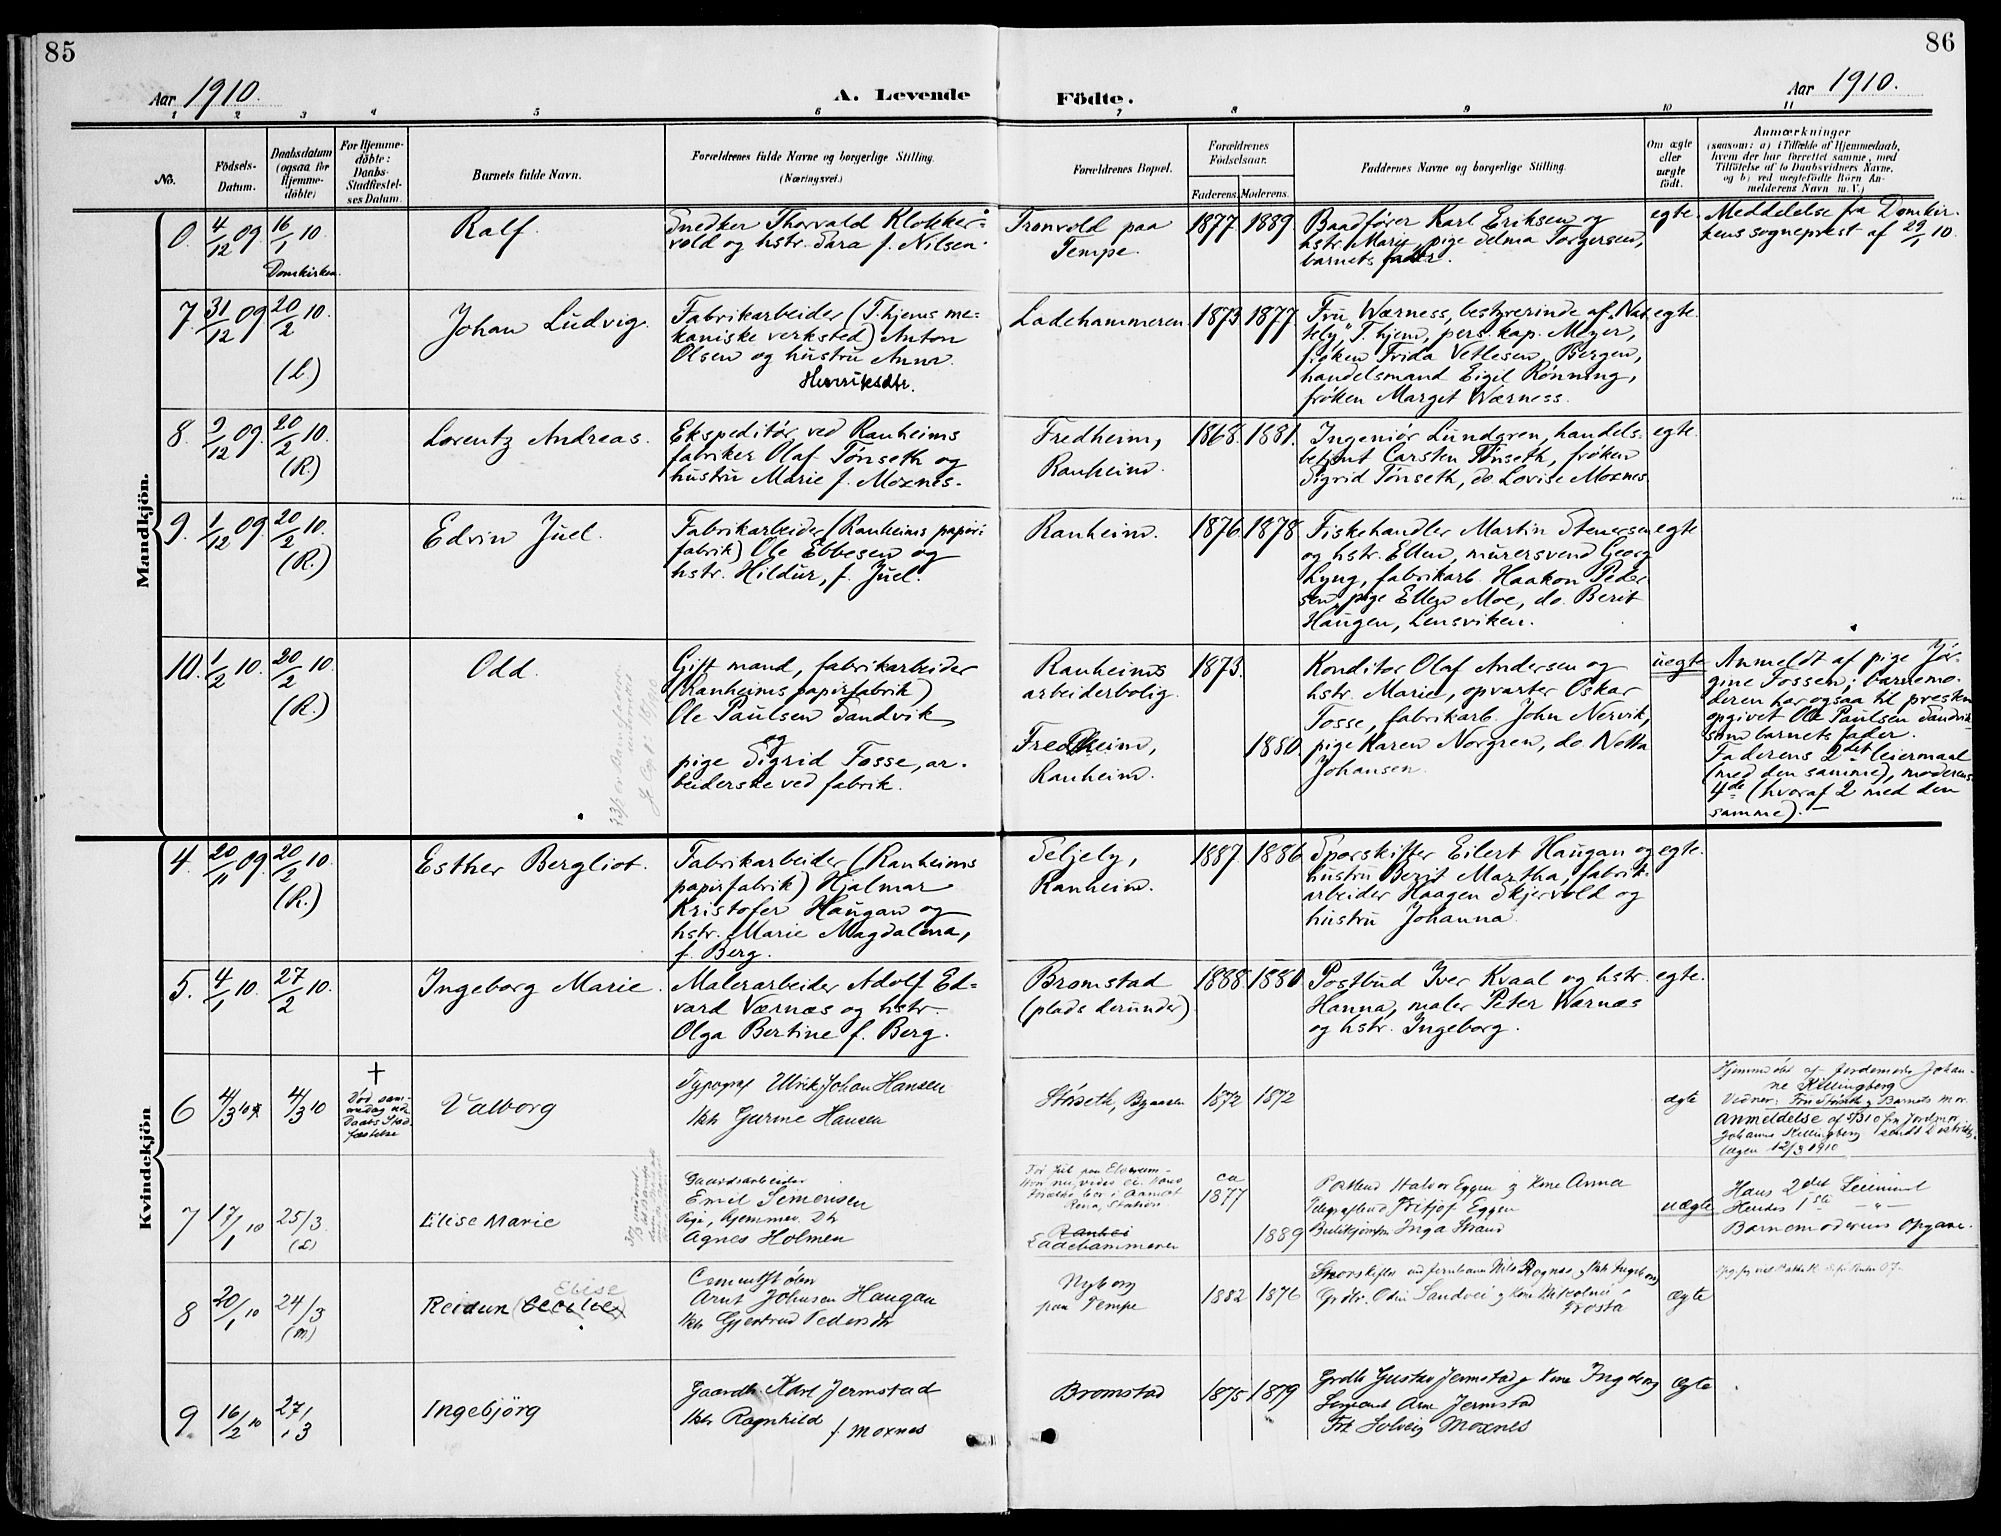 85
86
Aar 1910.
A. Levende
Födte.
Aar 1910.
1 2 3 4 5 6 7 8 9 10 11
No.
Födsels-
Datum.
Daabsdatum
(ogsaa for
Hjemme-
döbte)
For Hjemme-
döbte:
Daabs-
Stadfæstel-
ses Datum.
Barnets fulde Navn.
Forældrenes fulde Navne og borgerlige Stilling.
(Næringsvei.)
Forældrenes Bopæl.
Forældrenes
Födselsaar.
Faderens. Moderens.
Faddernes Navne og borgerlige Stilling.
Om ægte
eller
uægte
födt.
Anmærkninger
(saasom: a) i Tilfælde af Hjemmedaab,
hvem der har forrettet samme, med
Tilföielse af to Daabsvidners Navne,
og b) ved uægtefödte Börn An-
melderens Navn m. V.)
Mandkjön.
0. 4/12 09 16/1 10.
Domkirken.
Ralf.
Snedker Thorvald Klokker-
vold og hstr. Sara f. Nilsen.
Tronvold paa
Tempe.
1877. 1889.
Baadfører Karl Eriksen og
hstr. Mary, pige Selma Torgersen,
barnets fader.
egte.
Meddelelse fra Domkir-
kens sogneprest af 29/1 10.
7. 31/12 09 20/2 10.
(L)
Johan Ludvig.
Fabrikarbeider (T.hjems me-
kaniske verksted) Anton
Olsen og hustru Anna
Henriksdtr.
Ladehammeren.
1873. 1877.
Fru Wærness, bestyrerinde af "Nat
tely" T.hjem, pers. kap. Meyer,
frøken Frida Vetlesen, Bergen,
handelsmand Eigil Rønning,
frøken Margit Wærness.
egte.
8. 9/12 09. 20/2 10.
(R.)
Lorentz Andreas.
Ekspeditør ved Ranheims
fabriker Olaf Tønseth og
hustru Marie f. Moxnes.
Fredheim,
Ranheim.
1868. 1881.
Ingeniør Lundgren, handels-
betjent Carsten Tønseth, frøken
Sigrid Tønseth, do Lovise Moxnes.
egte.
9. 1/12 09. 20/2 10.
(R.)
Edvin Juel.
Fabrikarbeider (Ranheims papir-
fabrik) Ole Ebbesen og
hstr. Hildur, f. Juel.
Ranheim.
1876. 1878.
Fiskehandler Martin Stenersen
og hstr. Ellen, murersvend Georg
Lyng, fabrikarb. Haakon Peder
sen, pige Ellen Moe, do. Berit
Haugen, Lensviken.
egte
10. 1/2 10. 20/2 10.
(R.)
Odd.
Gift mand, fabrikarbeider
(Ranheims papirfabrik)
Ole Paulsen Sandvik
og
pige Sigrid Fosse, ar-
beiderske ved fabrik.
Ranheims
arbeiderbolig.
Fredheim,
Ranheim.
1873.
1880.
Konditor Olaf Andersen og
hstr. Marie, opvarter Oskar
Fosse, fabrikarb. John Nervik,
pige Karen Norgren, do. Netta
Johansen.
uegte
Anmeldt af pige Jør-
gine Fossen; barnemo-
deren har ogsaa til presten
opgivet Ole Paulsen Sandvik
som barnets fader.
Faderens 2det leiermaal
(med den samme), moderens
4de (hvoraf 2 med den
samme).
Kvindekjön
4. 20/11 09. 20/2 10.
(R.)
Esther Bergliot.
Fabrikarbeider (Ranheims
papirfabrik) Hjalmar
Kristofer Haugan og
hstr. Marie Magdalena,
f. Berg.
Seljely,
Ranheim.
1887. 1886
Sporskifter Eilert Haugan og
hustru Berit Martha, fabrik-
arbeider Haagen Skjervold og
hustru Johanna
egte.
5. 4/1 10. 27/2 10.
Ingeborg Marie.
Malerarbeider Adolf Ed-
vard Værnæs og hstr.
Olga Bertine f. Berg.
Bromstad
(plads derunder)
1888. 1880
Postbud Iver Kvaal og hstr.
Hanna, maler Peter Wærnæs
og hstr. Ingeborg.
egte.
6 4/3 10 4/3 10
Valborg
Typograf Ulrik Johan Hansen
Hstr Gurine Hansen
Støseth, Byaasen
1872 1872
ægte
Hjemmdøbt af Jordemoder Johan-
ne Killingberg
Vidner: Fru Støseth og Barnets Mor
Anmeldelse af
12/3 1910
7 17/1 10 25/3
(L)
Elise Marie
Gaardsarbeider
Emil Simensen
Pige, hjemmev. Dtr
Agnes Holmen
Ranhei
Ladehammeren
ca
1877
1889
Postbud Halvor Eggen og Kone Anna
Telegrafbud Fritjof Eggen
Butikjomfru Inga Strand
uægte
Hans 2det Leierml
Hendes 1ste — " —
Barnemoderens Opgave.
8 20/1 10 24/3
(m)
Reidun Elise
Cementstøber
Arnt Johnsen Haugan
Hstr Gjertrud Pedersdtr
Nyborg
paa Tempe
1882 1876
Frosta
ægte
9. 16/2 10 27/3
Ingebjörg
Gaardbr. Karl Jermstad
Hstr Ragnhild f. Moxnes
Bromstad
1875 1879
Grdbr Gustav Jermstad og Kone Ingeborg
Sergeant Arne Jermstad
Frk Solveig Moxnes
ægte